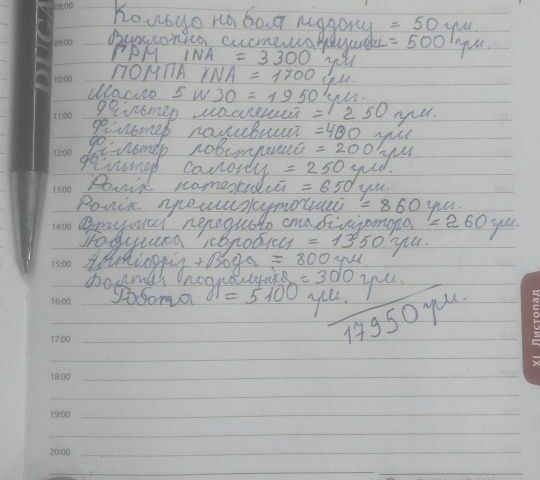 Кольцо на болт піддону = 50 грн.
08:00
Вихлопна система = 500 грн.
09:00
ГРМ INA = 3300 грн
ПОМПА INA = 1700 грн.
10:00
Масло 5W30 = 1950 грн.
Фільтер масляний = 250 грн.
11:00
Фільтер паливний = 400 грн
Фільтер повітряний = 200 грн
12:00
Фільтер салону = 250 грн.
Ролік натежний = 650 грн.
13:00
Ролік промижуточний = 860 грн.
Втулки передньго стабілізатора = 260 грн.
14:00
Подушка коробки = 1350 грн.
Антіфріз + Вода = 800 грн
15:00
Болти подрамника = 300 грн.
Робота = 5100 грн.
16:00
17950 грн.
17:00
18:00
19:00
20:00
XI Листопад